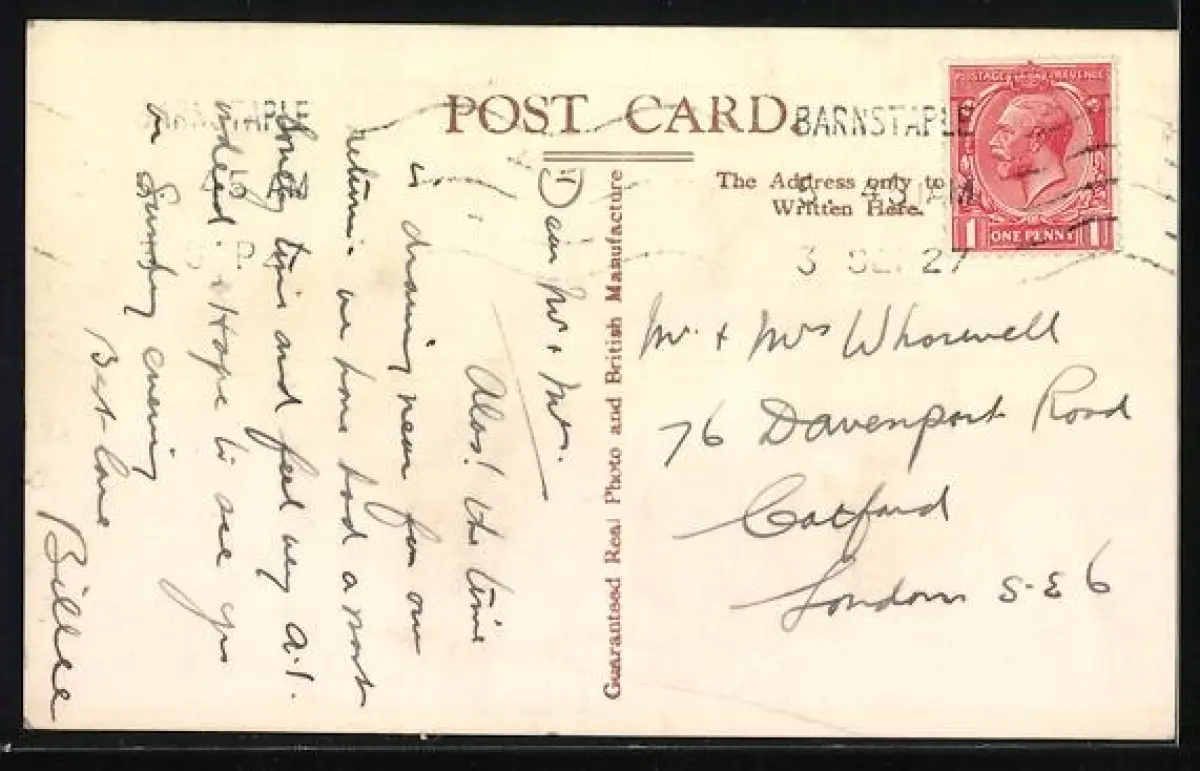 POST CARD.
BARNSTAPLE
BARNSTAPLE
POSTAGE REVENUE
1 ONE PENNY 1
The Address only to be
Written Here.
3 SEP 27
Guaranteed Real Photo and British Manufacture
Dear Mr. & Mrs.
Alas! the time
is drawing near for our
return. we have had a most
time and feel very A.1.
indeed. Hope to see you
on Sunday evening
Best love
Billee
Mr. & Mrs Whorewell
76 Davenport Road
Catford
London S-E 6